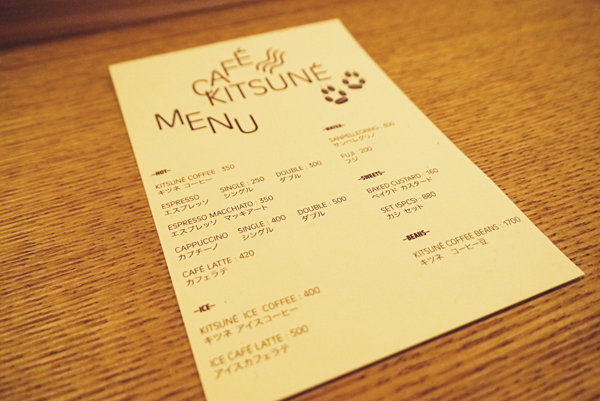 CAFÉ
KITSUNÉ
MENU
-HOT-
KITSUNÉ COFFEE : 350
キツネ コーヒー
ESPRESSO SINGLE : 250 DOUBLE : 300
エスプレッソ シングル ダブル
ESPRESSO MACCHIATO : 350
エスプレッソ マッキアート
CAPPUCCINO SINGLE : 400 DOUBLE : 500
カプチーノ シングル ダブル
CAFÉ LATTE : 420
カフェラテ
-ICE-
KITSUNÉ ICE COFFEE : 400
キツネ アイスコーヒー
ICE CAFÉ LATTE : 500
アイスカフェラテ
-WATER-
SANPELLEGRINO : 300
サンペレグリノ
FUJI : 200
フジ
-SWEETS-
BAKED CUSTARD : 160
ベイクド カスタード
SET (5PCS) : 880
カシ セット
-BEANS-
KITSUNÉ COFFEE BEANS : 1700
キツネ コーヒー豆